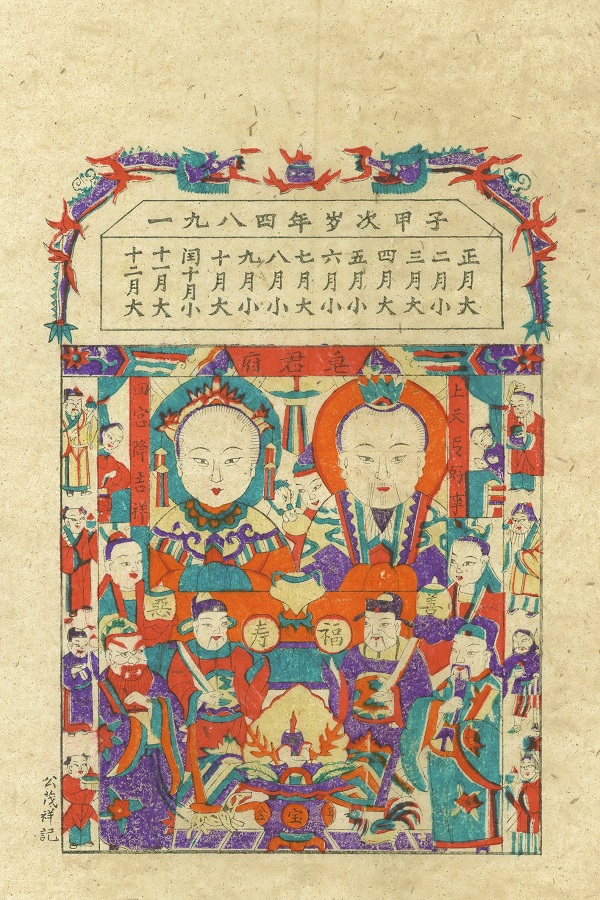 一九八四年岁次甲子
正月大
二月小
三月大
四月大
五月小
六月小
七月大
八月小
九月小
十月大
闰十月小
十一月大
十二月大
皂君府
上天言好事
回宮降吉祥
善
福
寿
惡
宝
公茂祥記